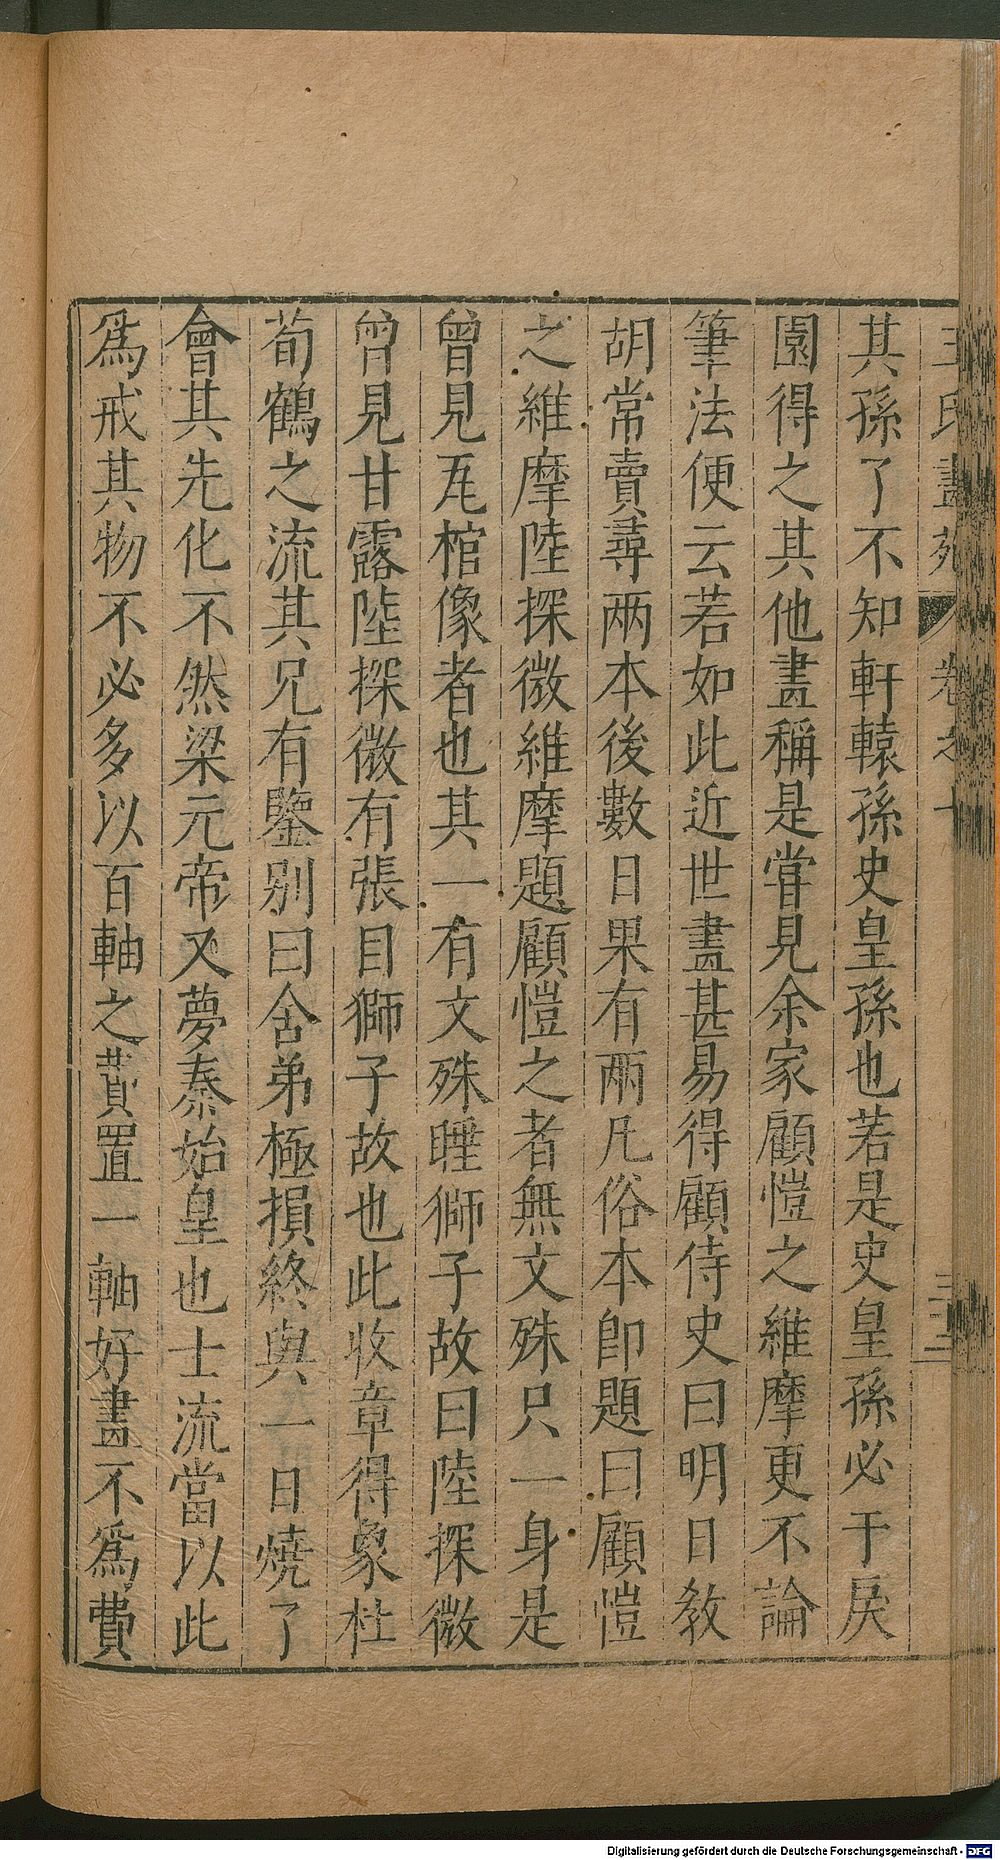 王氏畫苑 卷之十 三十三
其孫了不知軒轅孫史皇孫也若是史皇孫必于戾
園得之其他畫稱是嘗見余家顧愷之維摩更不論
筆法便云若如此近世畫甚易得顧侍史曰明日教
胡常賣尋兩本後數日果有兩凡俗本即題曰顧愷
之維摩陸探微維摩題顧愷之者無文殊只一身是
曾見瓦棺像者也其一有文殊睡獅子故曰陸探微
曾見甘露陸探微有張目獅子故也此收章得象杜
荀鶴之流其兄有鑒别曰舍弟極損終與一日燒了
會其先化不然梁元帝又夢秦始皇也士流當以此
為戒其物不必多以百軸之費置一軸好畫不為費
Digitalisierung gefördert durch die Deutsche Forschungsgemeinschaft - DFG